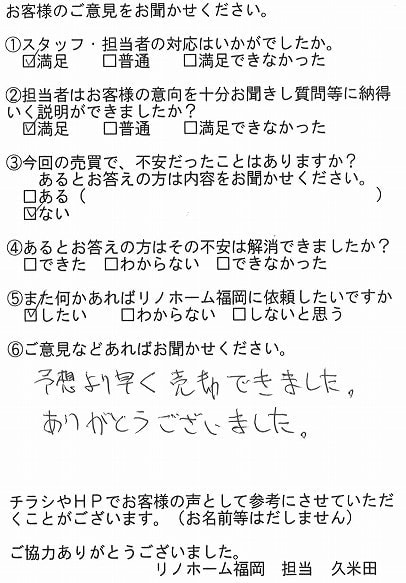 お客様のご意見をお聞かせください。
①スタッフ・担当者の対応はいかがでしたか。
☑満足 □普通 □満足できなかった
②担当者はお客様の意向を十分お聞きし質問等に納得
いく説明ができましたか？
☑満足 □普通 □満足できなかった
③今回の売買で、不安だったことはありますか？
あるとお答えの方は内容をお聞かせください。
□ある（ ）
☑ない
④あるとお答えの方はその不安は解消できましたか？
□できた □わからない □できなかった
⑤また何かあればリノホーム福岡に依頼したいですか
☑したい □わからない □しないと思う
⑥ご意見などあればお聞かせください。
予想より早く売却できました。
ありがとうございました。
チラシやＨＰでお客様の声として参考にさせていただ
くことがございます。（お名前等はだしません）
ご協力ありがとうございました。
リノホーム福岡 担当 久米田